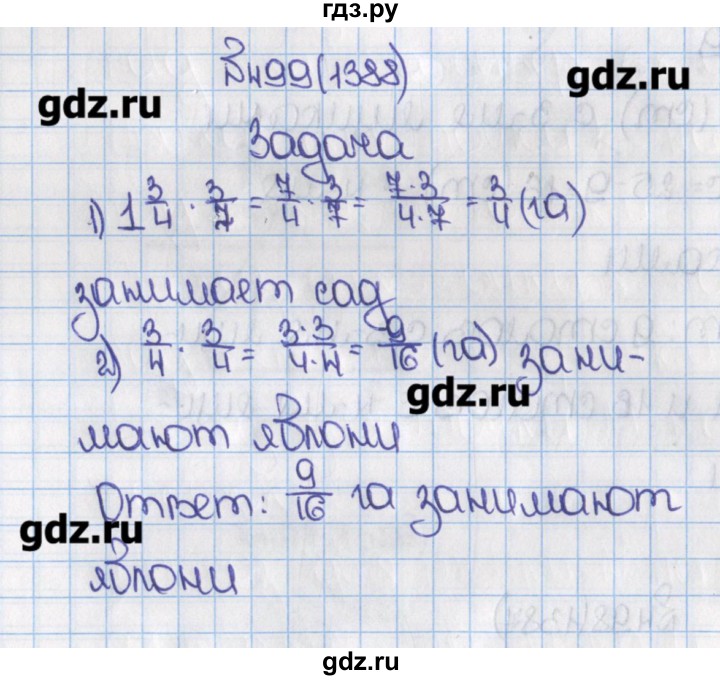 гдз.ру
№499(1388)
gdz.ru
gdz.ru
Задача
1) 1 3/4 · 3/7 = 7/4 · 3/7 = 7·3/4·7 = 3/4 (га)
занимает сад
2) 3/4 · 3/4 = 3·3/4·4 = 9/16 (га) зани-
gdz.ru
мают яблони
Ответ: 9/16 га занимают
gdz.ru
яблони
gdz.ru